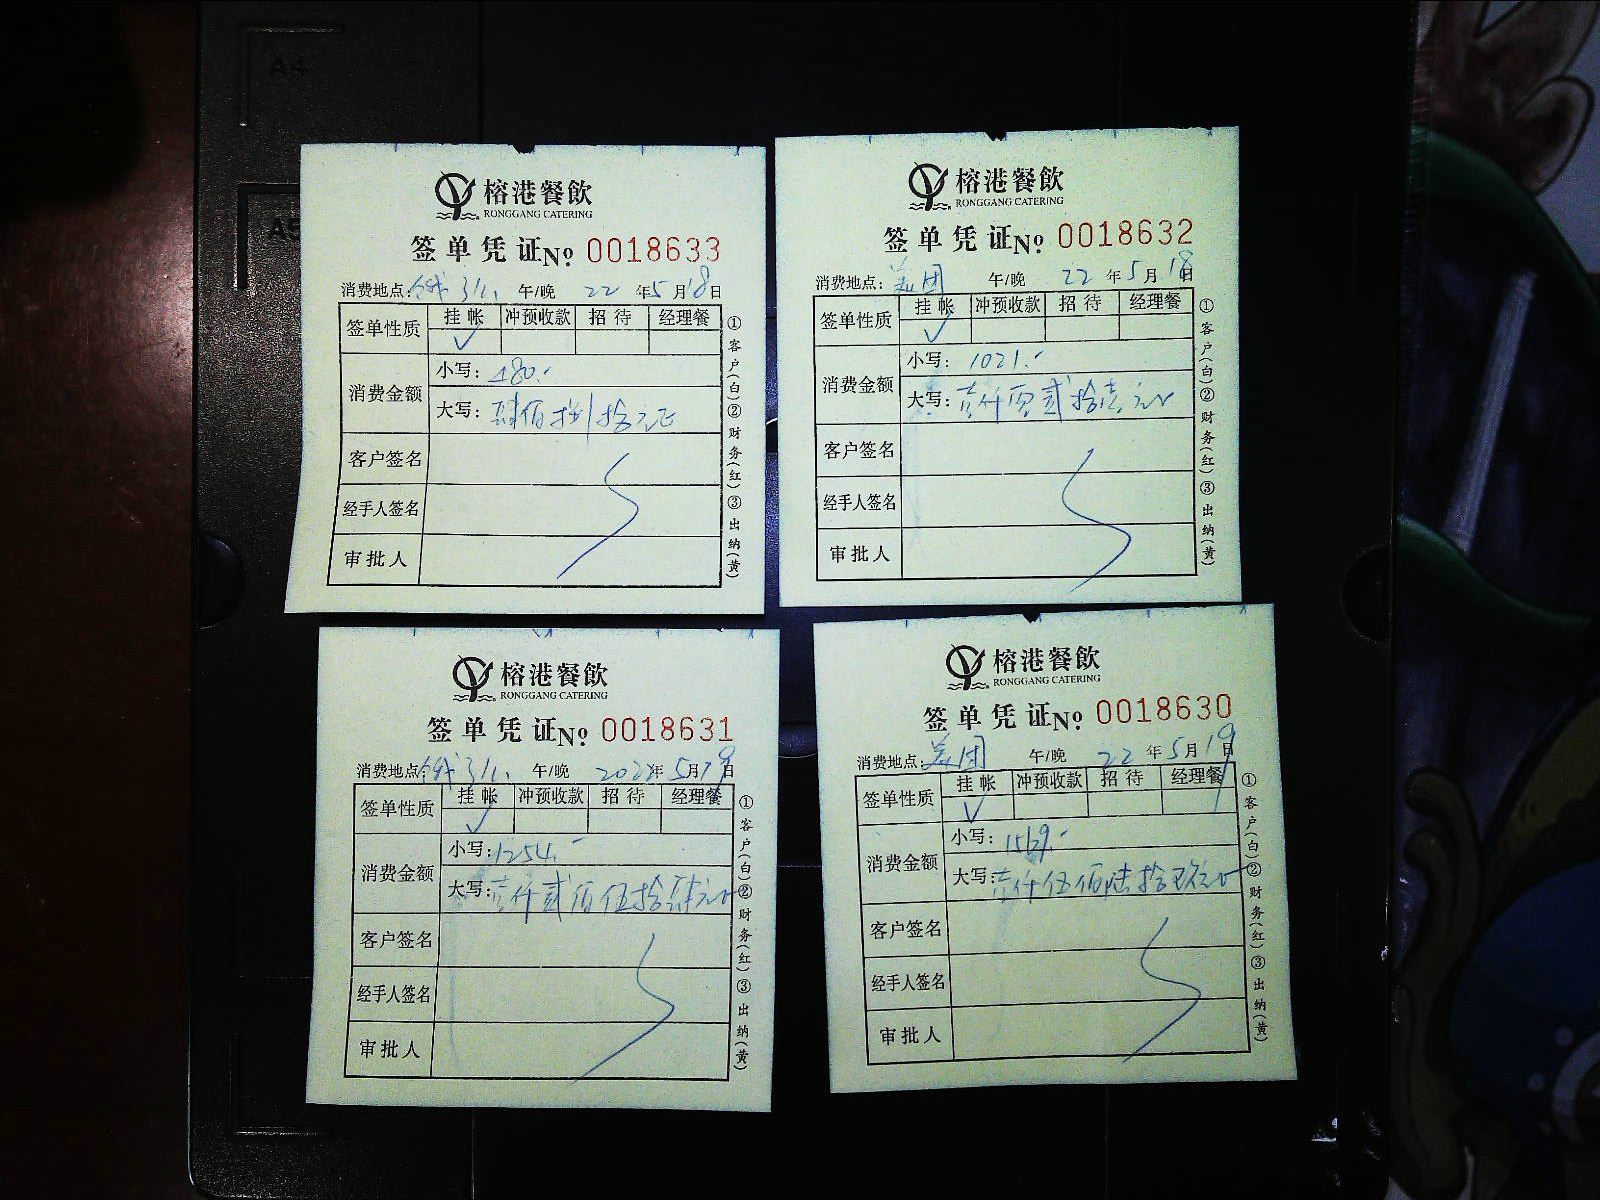 A4
A5
榕港餐飲
RONGGANG CATERING
签单凭证 No 0018633
消费地点: 午/晚 22 年 5 月 18 日
签单性质 挂帐 冲预收款 招待 经理餐
✓
消费金额
小写: 480.-
大写: 肆佰捌拾元正
客户签名
经手人签名
审批人
①客户(白)②财务(红)③出纳(黄)
榕港餐飲
RONGGANG CATERING
签单凭证 No 0018632
消费地点: 美团 午/晚 22 年 5 月 18 日
签单性质 挂帐 冲预收款 招待 经理餐
✓
消费金额
小写: 1021.-
大写: 壹仟零贰拾壹元
客户签名
经手人签名
审批人
①客户(白)②财务(红)③出纳(黄)
榕港餐飲
RONGGANG CATERING
签单凭证 No 0018631
消费地点: 午/晚 2022 年 5 月 19 日
签单性质 挂帐 冲预收款 招待 经理餐
✓
消费金额
小写: 1254.-
大写: 壹仟贰佰伍拾肆元
客户签名
经手人签名
审批人
①客户(白)②财务(红)③出纳(黄)
榕港餐飲
RONGGANG CATERING
签单凭证 No 0018630
消费地点: 美团 午/晚 22 年 5 月 19 日
签单性质 挂帐 冲预收款 招待 经理餐
✓
消费金额
小写: 1569.-
大写: 壹仟伍佰陆拾玖元
客户签名
经手人签名
审批人
①客户(白)②财务(红)③出纳(黄)